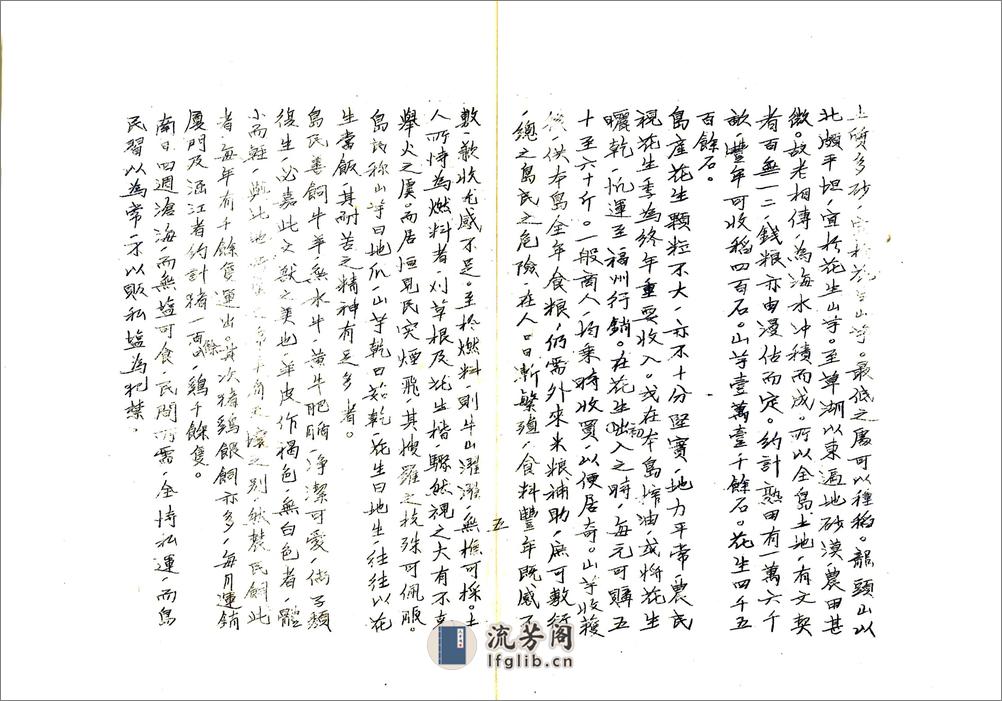 土質多砂，宜於花生山芋。最低之處可以種稻。龍頭山以
北頗平坦，宜於花生山芋。至草湖以東遍地砂漠，農田甚
微。故老相傳，為海水冲積而成。所以全島土地，有文契
者百無一二，錢粮亦由漫估而定。約計熟田有一萬六千
畝，豐年可收稻四百石。山芋壹萬壹千餘石。花生四千五
百餘石。
島產花生顆粒不大，亦不十分堅實，地力平常，農民
視花生季為終年重要收入。或在本島榨油，或將花生
曬乾，忛運至福州行銷。在花生初出入之時，每元可購五
十至六十斤。一般商人，均乘時收買，以便居奇。山芋收穫
後供本島全年食粮，仍需外來米粮補助，庶可敷行
，總之島民之危險，在人口日漸繁殖，食料豐年既感不
五
敷，歉收尤感不足。至於燃料，則牛山濯濯，無樵可採。土
人所恃為燃料者，刈草根及花生楷，驟然視之大有不克
舉火之虞，而居恒見民突煙飛，其搜羅之技殊可佩服。
島諺称山芋曰地瓜，山芋乾曰茹乾，花生曰地生，往往以花
生當飯，其耐苦之精神有足多者。
島民善飼牛羊，無水牛，黃牛肥腯，净潔可愛，倘子類
復生，必嘉此文獸之美也，羊皮作褐色，無白色者，體
小而輕，與北地 之別，然農民飼此
者每年有千餘隻運出。其次猪鷄餵飼亦多，每月運銷
厦門及涵江者約計猪一百餘口，鷄千餘隻。
南日四週滄海，而無鹽可食，民間所需，全恃私運，而島
民習以為常，不以販私鹽為犯禁。
流芳阁
lfglib.cn